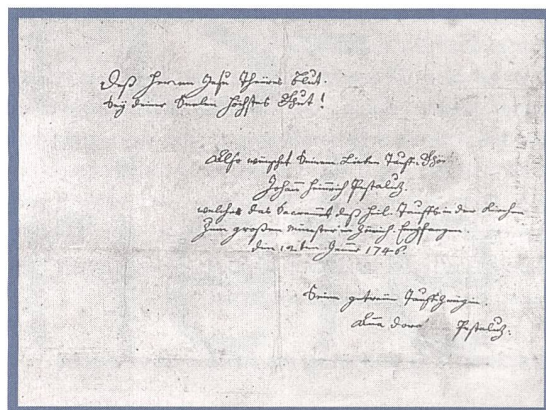 Deß Herren Jesu Theüres Blut.
Sey deiner Seelen höchstes Gut!
Also wünschet Seinem Lieben Tauff-
Johañ Heinrich Pestaluz.
welches das Sacrament deß heil. Tauffs in der Kirchen
Zum großen Münster in Zürich Empfangen.
den 12ten Jenner 1746.
Seine getreüe Tauffzeugin.
Aña Dorô Pestaluz.